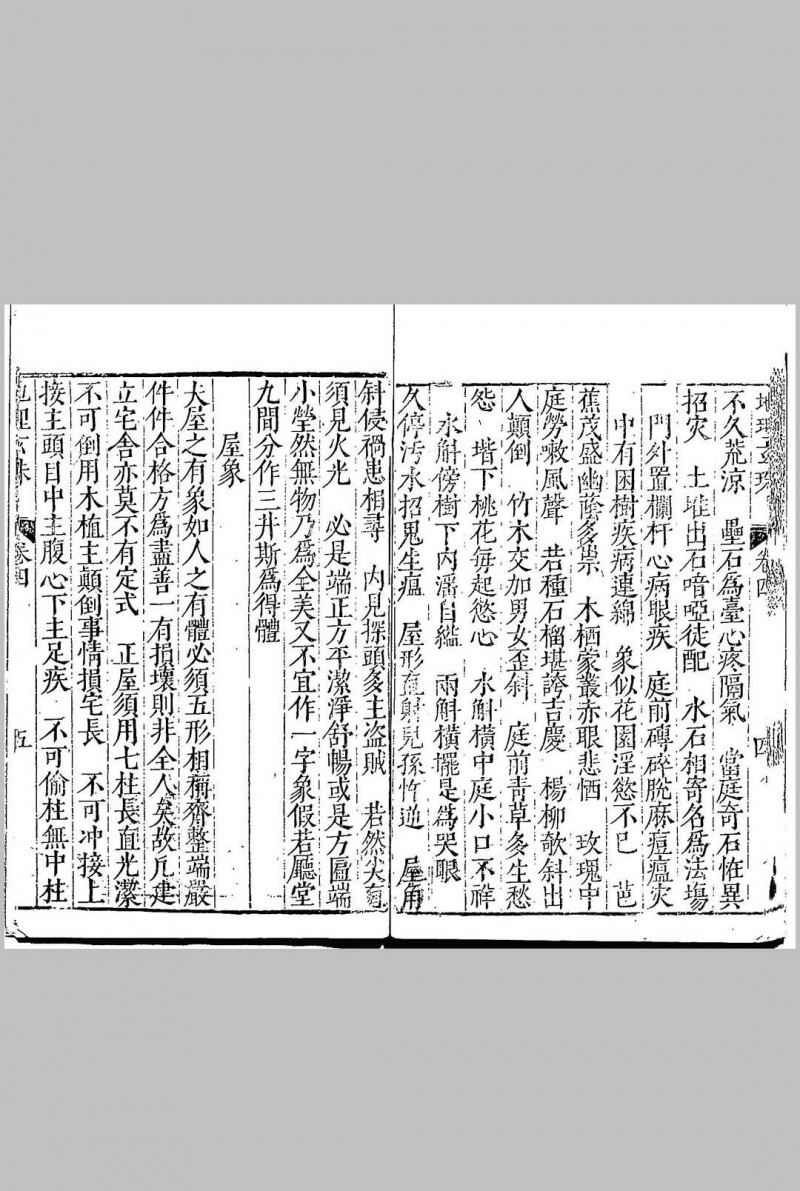 地理玄珠 卷四 四
不久荒涼 壘石為臺心疼隔氣 當庭奇石恠異
招灾 土堆出石喑啞徒配 水石相寄名為法塲
門外置欄杆心病眼疾 庭前磚碎脫麻痘瘟灾
中有困樹疾病連綿 象似花園淫慾不已 芭
蕉茂盛幽蔭多祟 木栖家叢赤眼悲恓 玫瑰中
庭勞嗽風聲 若種石榴堪誇吉慶 楊柳欹斜出
人顛倒 竹木交加男女歪斜 庭前青草多生愁
怨 堦下桃花每起慾心 水斛橫中庭小口不祥
水斛傍樹下內㵝自縊 兩斛橫擺是為哭眼
久停汚水招鬼生瘟 屋形直射兒孫忤逆 屋角
斜侵禍患相尋 內見探頭多主盗賊 若然尖
須見火光 必是端正方平潔淨舒暢或是方匾端
小瑩然無物乃為全美又不宜作一字象假若廳堂
九間分作三井斯為得體
屋象
夫屋之有象如人之有體必須五形相稱齊整端嚴
件件合格方為盡善一有損壞則非全人矣故凡建
立宅舍亦莫不有定式 正屋須用七柱長直光潔
不可倒用木植主顛倒事情損宅長 不可冲接上
接主頭目中主腹心下主足疾 不可偷柱無中柱
地理玄珠 卷四 五